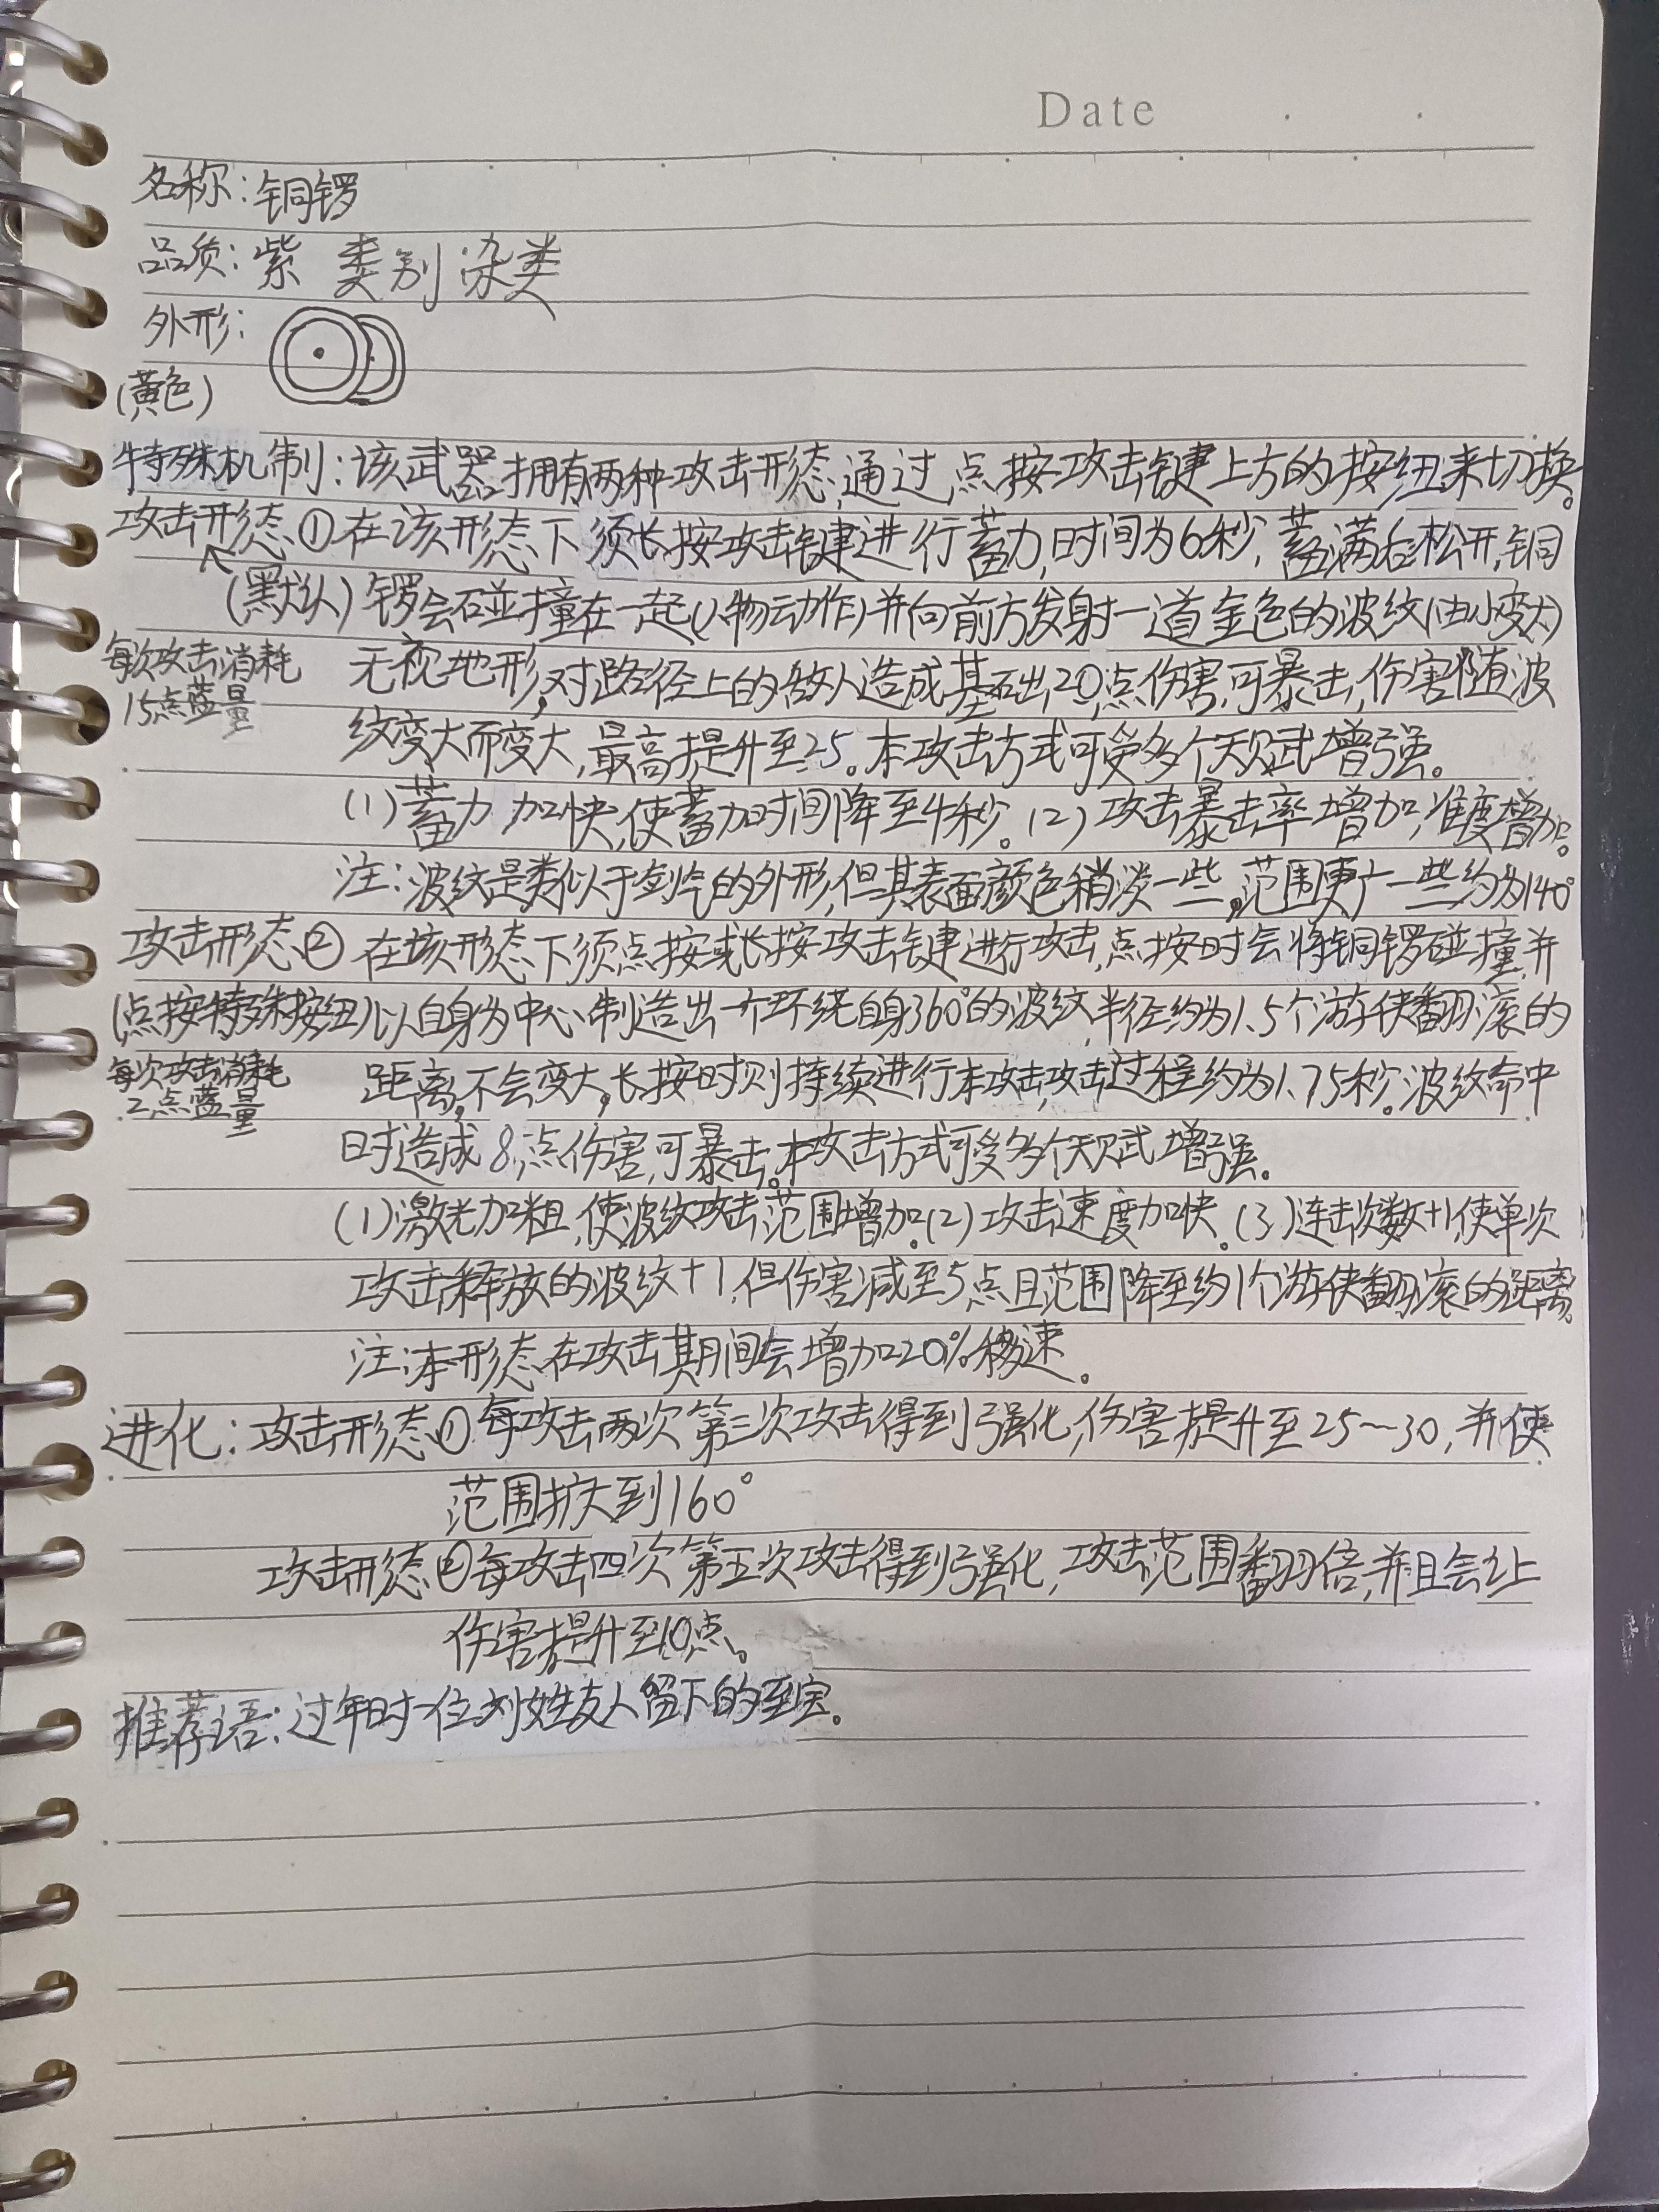 Date
名称：铜锣
品质：紫 类别 杂类
外形：
（黄色）
特殊机制：该武器拥有两种攻击形态，通过点按攻击键上方的按纽来切换。
攻击形态①在该形态下须长按攻击键进行蓄力，时间为6秒，蓄满后松开，铜
（默认）锣会碰撞在一起（人物动作）并向前方发射一道金色的波纹（由小变大）
每次攻击消耗
15点蓝量
无视地形，对路径上的敌人造成基础20点伤害，可暴击，伤害随波
纹变大而变大，最高提升至25。本攻击方式可受多个天赋增强。
(1)蓄力加快，使蓄力时间降至4秒。(2)攻击暴击率增加，准度增加。
注：波纹是类似于剑气的外形，但其表面颜色稍淡一些，范围更广一些约为140°
攻击形态②在该形态下须点按或长按攻击键进行攻击，点按时会将铜锣碰撞，并
（点按特殊按纽）以自身为中心制造出一个环绕自身360°的波纹，半径约为1.5个游侠翻滚的
每次攻击消耗
2点蓝量
距离，不会变大，长按时则持续进行本攻击，攻击过程约为1.75秒。波纹命中
时造成8点伤害，可暴击。本攻击方式可受多个天赋增强。
(1)激光加粗，使波纹攻击范围增加。(2)攻击速度加快。(3)连击次数+1，使单次
攻击释放的波纹+1，但伤害减至5点且范围降至约1个游侠翻滚的距离。
注：本形态在攻击期间会增加20%移速。
进化：攻击形态①每攻击两次第三次攻击得到强化，伤害提升至25～30，并使
范围扩大到160°
攻击形态②每攻击四次第五次攻击得到强化，攻击范围翻倍，并且会让
伤害提升至10点。
推荐语：过年时一位刘姓友人留下的至宝。